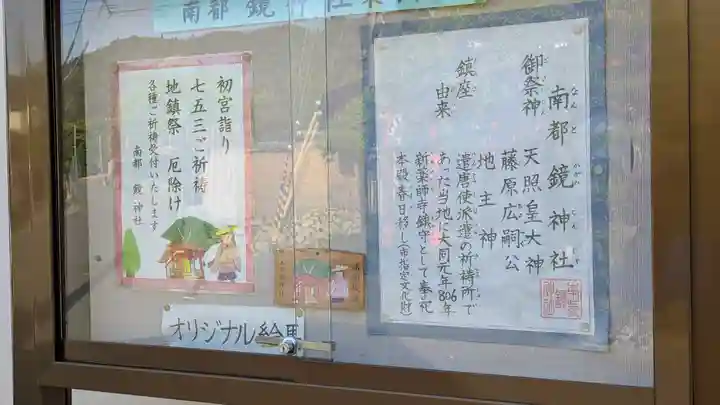 南都 鏡神社
南都鏡神社
なんと かがみ じんじゃ
御祭神
天照皇大神
藤原広嗣公
地主神
鎮座
由来
遣唐使派遣の祈祷所で
あった当地に大同元年806年
新薬師寺鎮守として奉祀
本殿春日移し(市指定文化財)
初宮詣り
七五三ご祈祷
地鎮祭 厄除け
各種ご祈祷受付いたします
南都 鏡神社
オリジナル絵馬